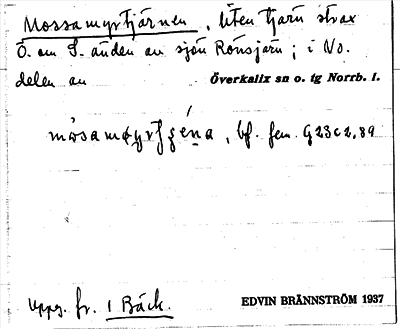 Mossamyrtjärnen, liten tjärn strax
Ö. om S. änden av sjön Rönsjärn; i No.
delen av Överkalix sn o. tg Norrb. l.
bf. fem. G23c2,89
Uppg. fr. 1 Bäck.
EDVIN BRÄNNSTRÖM 1937